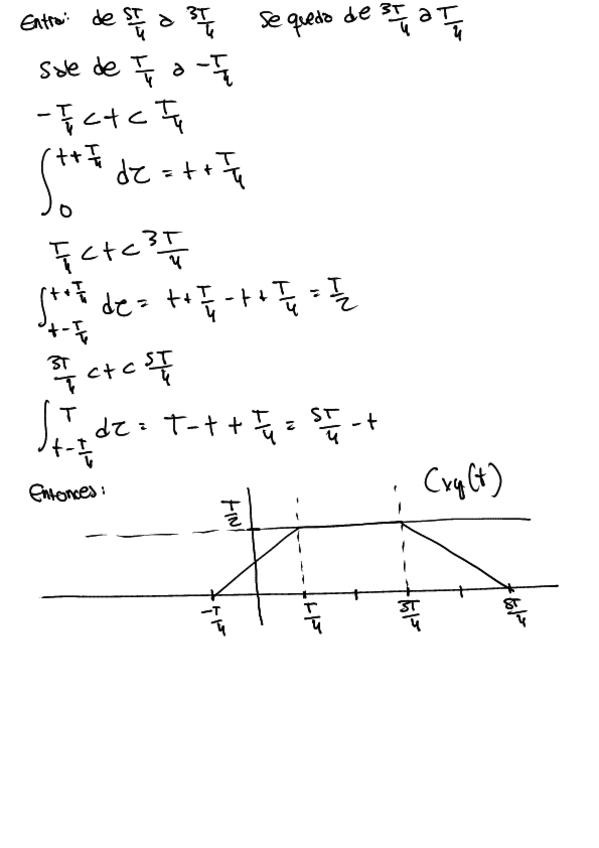 Entra: de 5T/4 a 3T/4 Se queda de 3T/4 a T/4
Sale de T/4 a -T/4
-T/4 < t < T/4
∫_0^{t+T/4} dτ = t + T/4
T/4 < t < 3T/4
∫_{t-T/4}^{t+T/4} dτ = t + T/4 - t + T/4 = T/2
3T/4 < t < 5T/4
∫_{t-T/4}^{T} dτ = T - t + T/4 = 5T/4 - t
Entonces:
Cxy(t)
T/2
-T/4 T/4 3T/4 5T/4